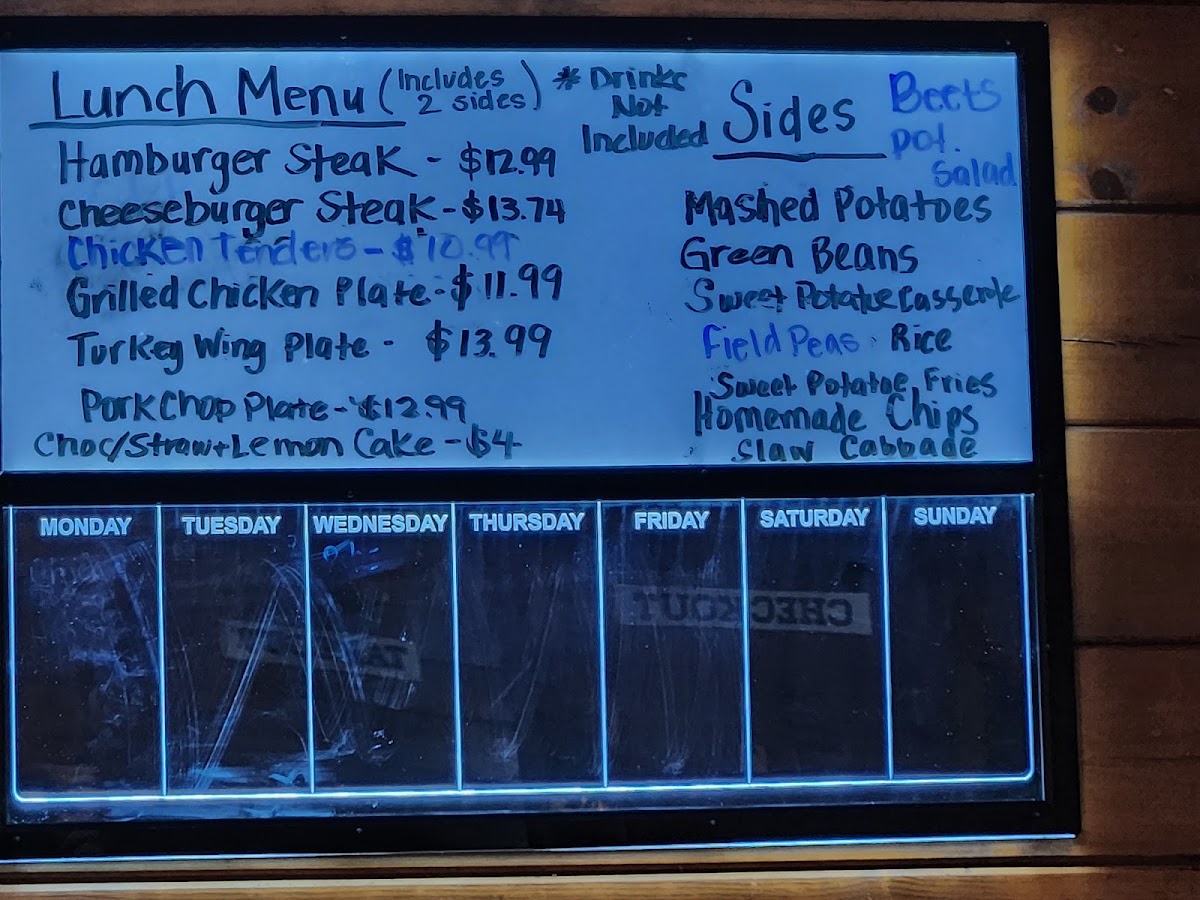 Lunch Menu (Includes 2 sides) * Drinks Not Included
Hamburger Steak - $12.99
Cheeseburger Steak - $13.74
Chicken Tenders - $10.99
Grilled Chicken Plate - $11.99
Turkey Wing Plate - $13.99
Pork Chop Plate - $12.99
Choc/Straw+Lemon Cake - $4
Sides
Beets
pot.
Salad
Mashed Potatoes
Green Beans
Sweet Potatoe Casserole
Field Peas Rice
Sweet Potatoe Fries
Homemade Chips
Slaw Cabbade
MONDAY TUESDAY WEDNESDAY THURSDAY FRIDAY SATURDAY SUNDAY
CHECKOUT